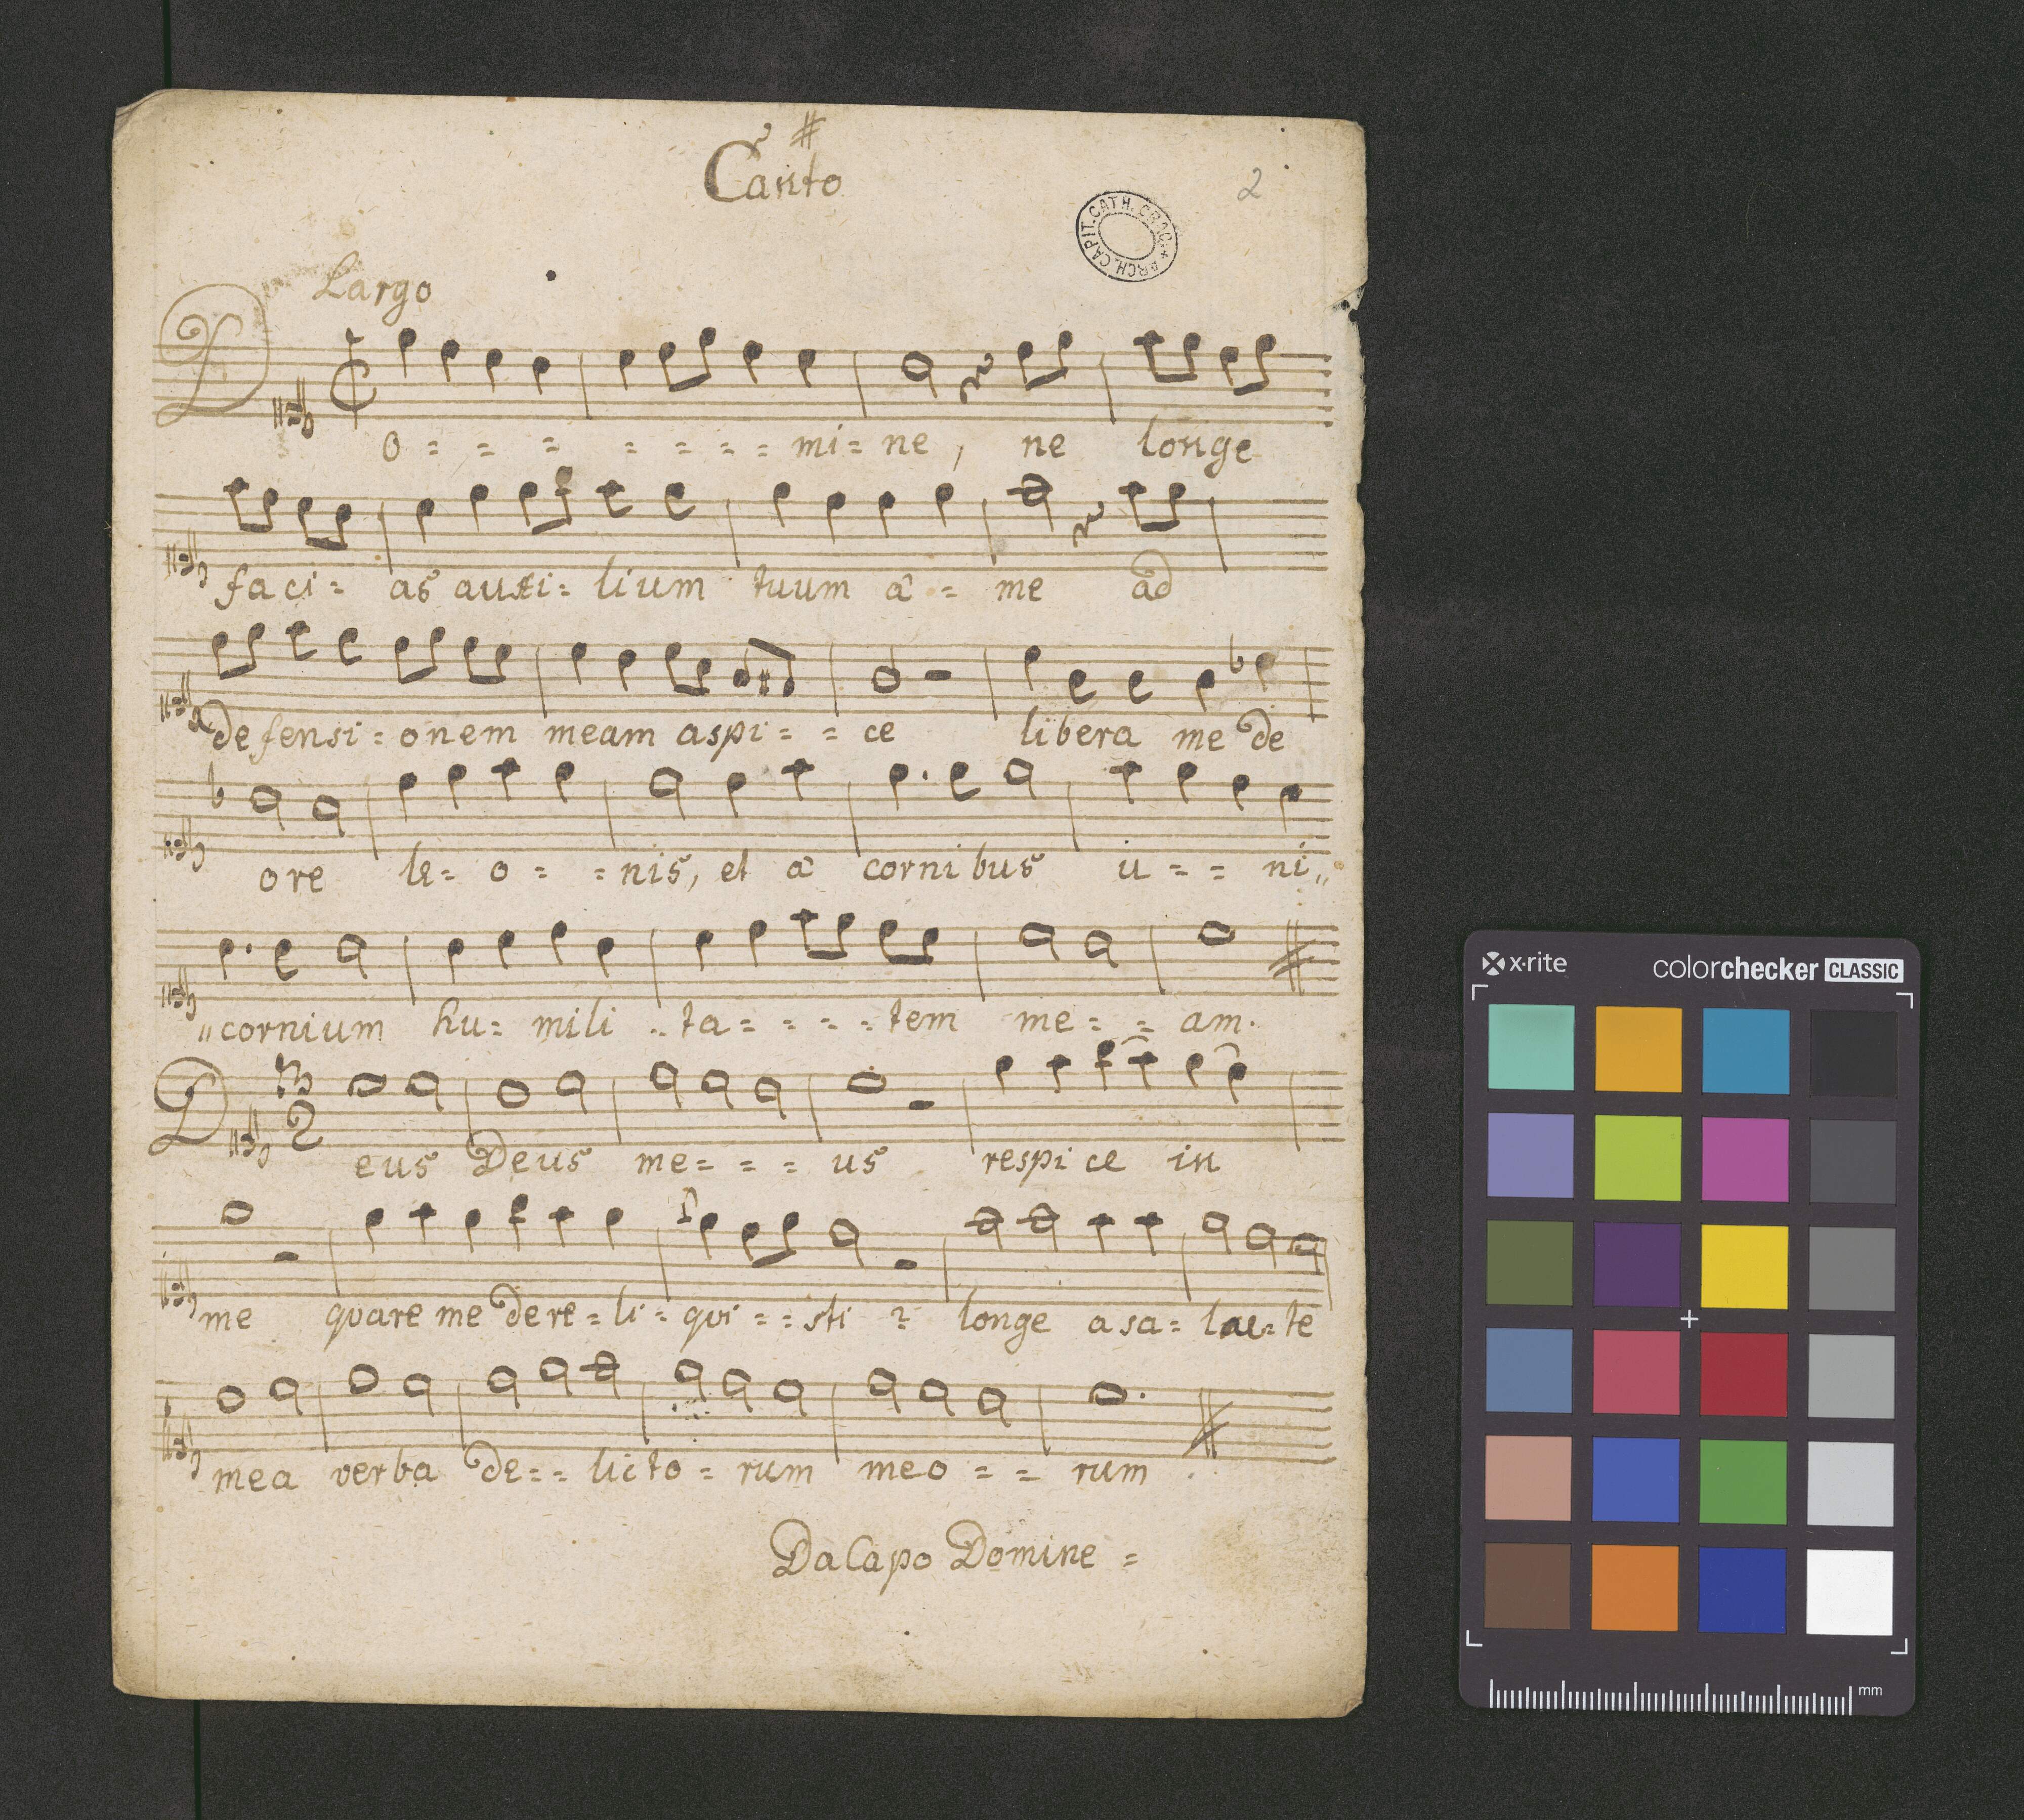 Canto
2
ARCH. CAPIT. CATH. CRAC.
Largo
Do - - - - - - - mi - ne, ne longe
faci - as auxi - lium tuum â - me ad
defensi - onem meam aspi - - ce libera me de
ore le - o - - nis, et â cornibus u - - ni,,
,,cornium hu - mili - ta - - - - tem me - - am.
Deus Deus me - - - us respice in
me quare me dere - li - qui - - sti ? longe a sa - lu - te
mea verba de - - licto - rum meo - - rum.
Da Capo Domine =
x·rite
colorchecker CLASSIC
mm